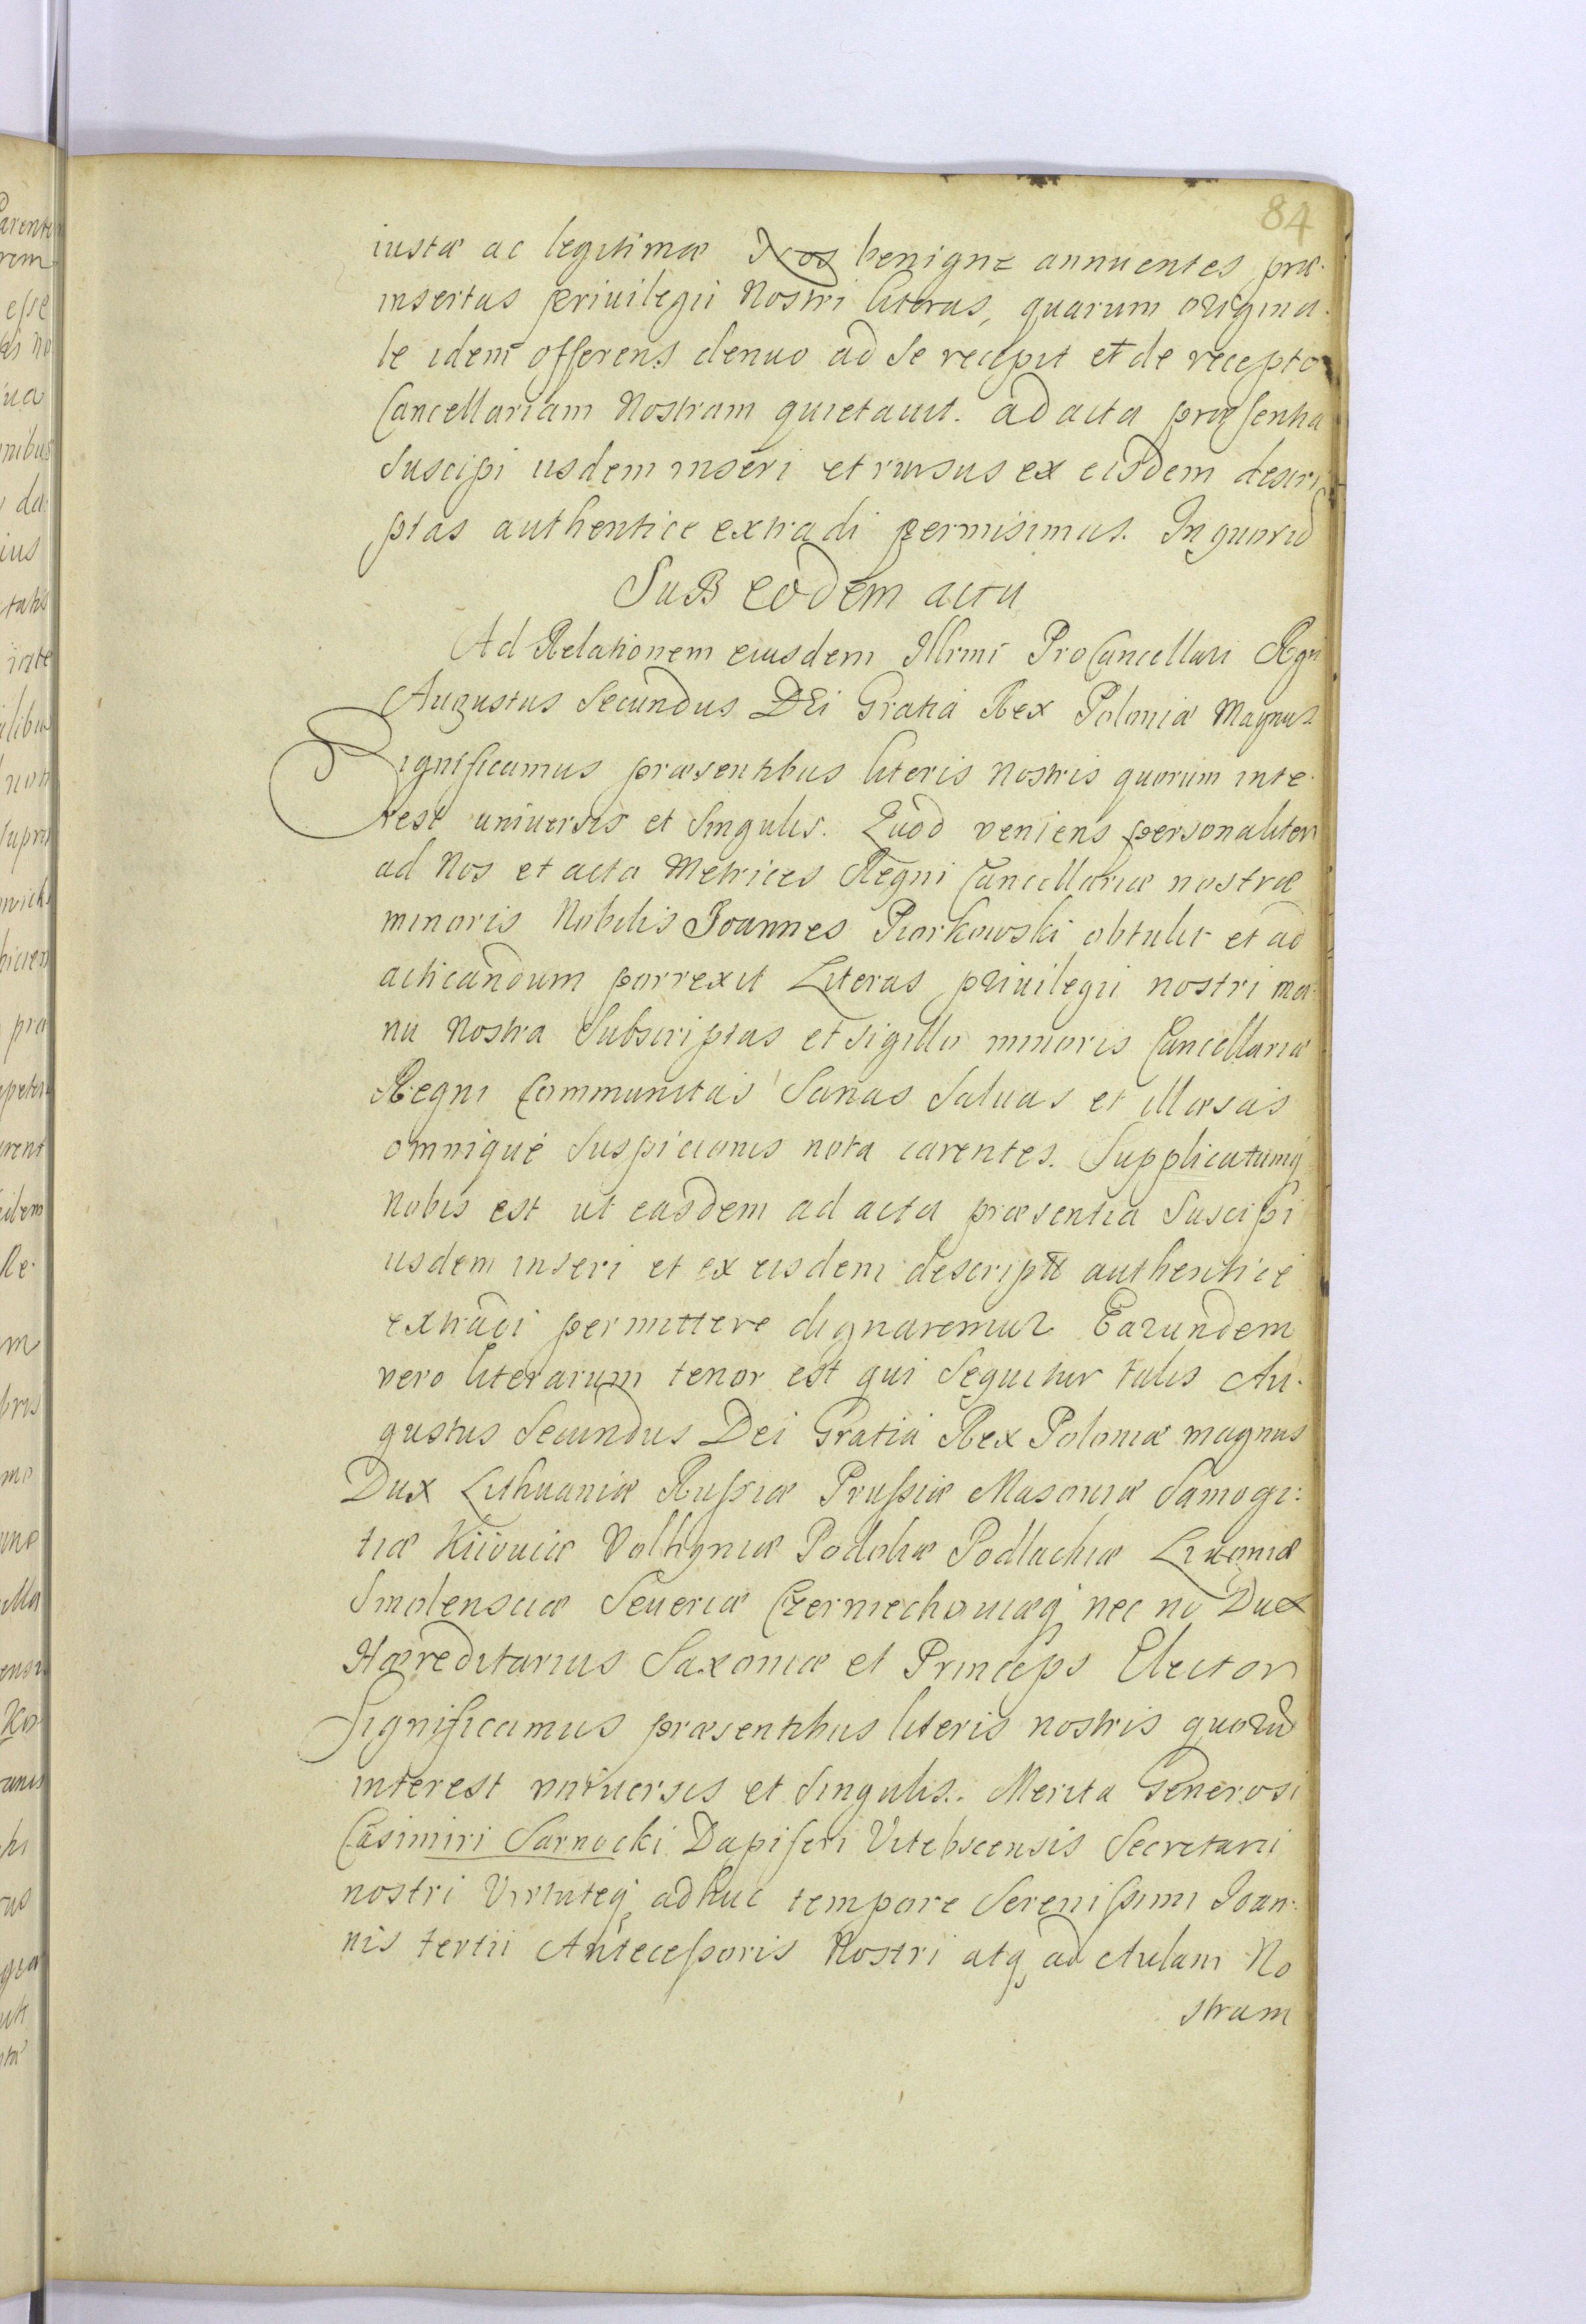 84
iustæ ac legitimæ Nos benigne annuentes præ-
insertas privilegii Nostri literas, quarum origina-
le idem offerens denuo ad se recepit et de recepto
Cancellariam Nostram quietavit. ad acta præsentia
Suscipi iisdem inseri et rursus ex eisdem descri
ptas authentice extradi permisimus. In quorū
SuB eodem actu
Ad Relationem eiusdem Illrmi ProCancellari Rgni
Augustus Secundus DEi Gratia Rex Poloniæ Magnus
Significamus præsentibus literis nostris quorum inte-
rest universis et Singulis. Quod veniens personaliter
ad Nos et acta Metrices Regni Cancellariæ nostræ
minoris Nobilis Joannes Piorkowski obtulit et ad
acticandum porrexit Literas privilegii nostri ma-
nu Nostra Subscriptas et sigillo minoris Cancellariæ
Regni Communitas Sanas Salvas et illæsas
omnique Suspicionis nota carentes. Supplicatumq
Nobis est ut easdem ad acta præsentia Suscipi
iisdem inseri et ex eisdem descript authentice
extradi permittere dignaremur Earundem
vero literarum tenor est qui Sequitur talis Au-
gustus Secundus Dei Gratia Rex Poloniæ magnus
Dux Lithuaniæ Russiæ Prussiæ Masoviæ Samogi:
tiæ Kiioviæ Volhyniæ Podoliæ Podlachiæ Livoniæ
Smolensciæ Severiæ Czerniechoviæq nec nō Dux
Hæreditarius Saxoniæ et Princeps Elector
Significamus præsentibus literis nostris quorū
interest universis et Singulis. Merita Generosi
Casimiri Sarnocki Dapiferi Vitebscensis Secretarii
nostri Virtuteq adhuc tempore Serenissimi Joan-
nis tertii Antecessoris Nostri atq ad Aulam No
stram